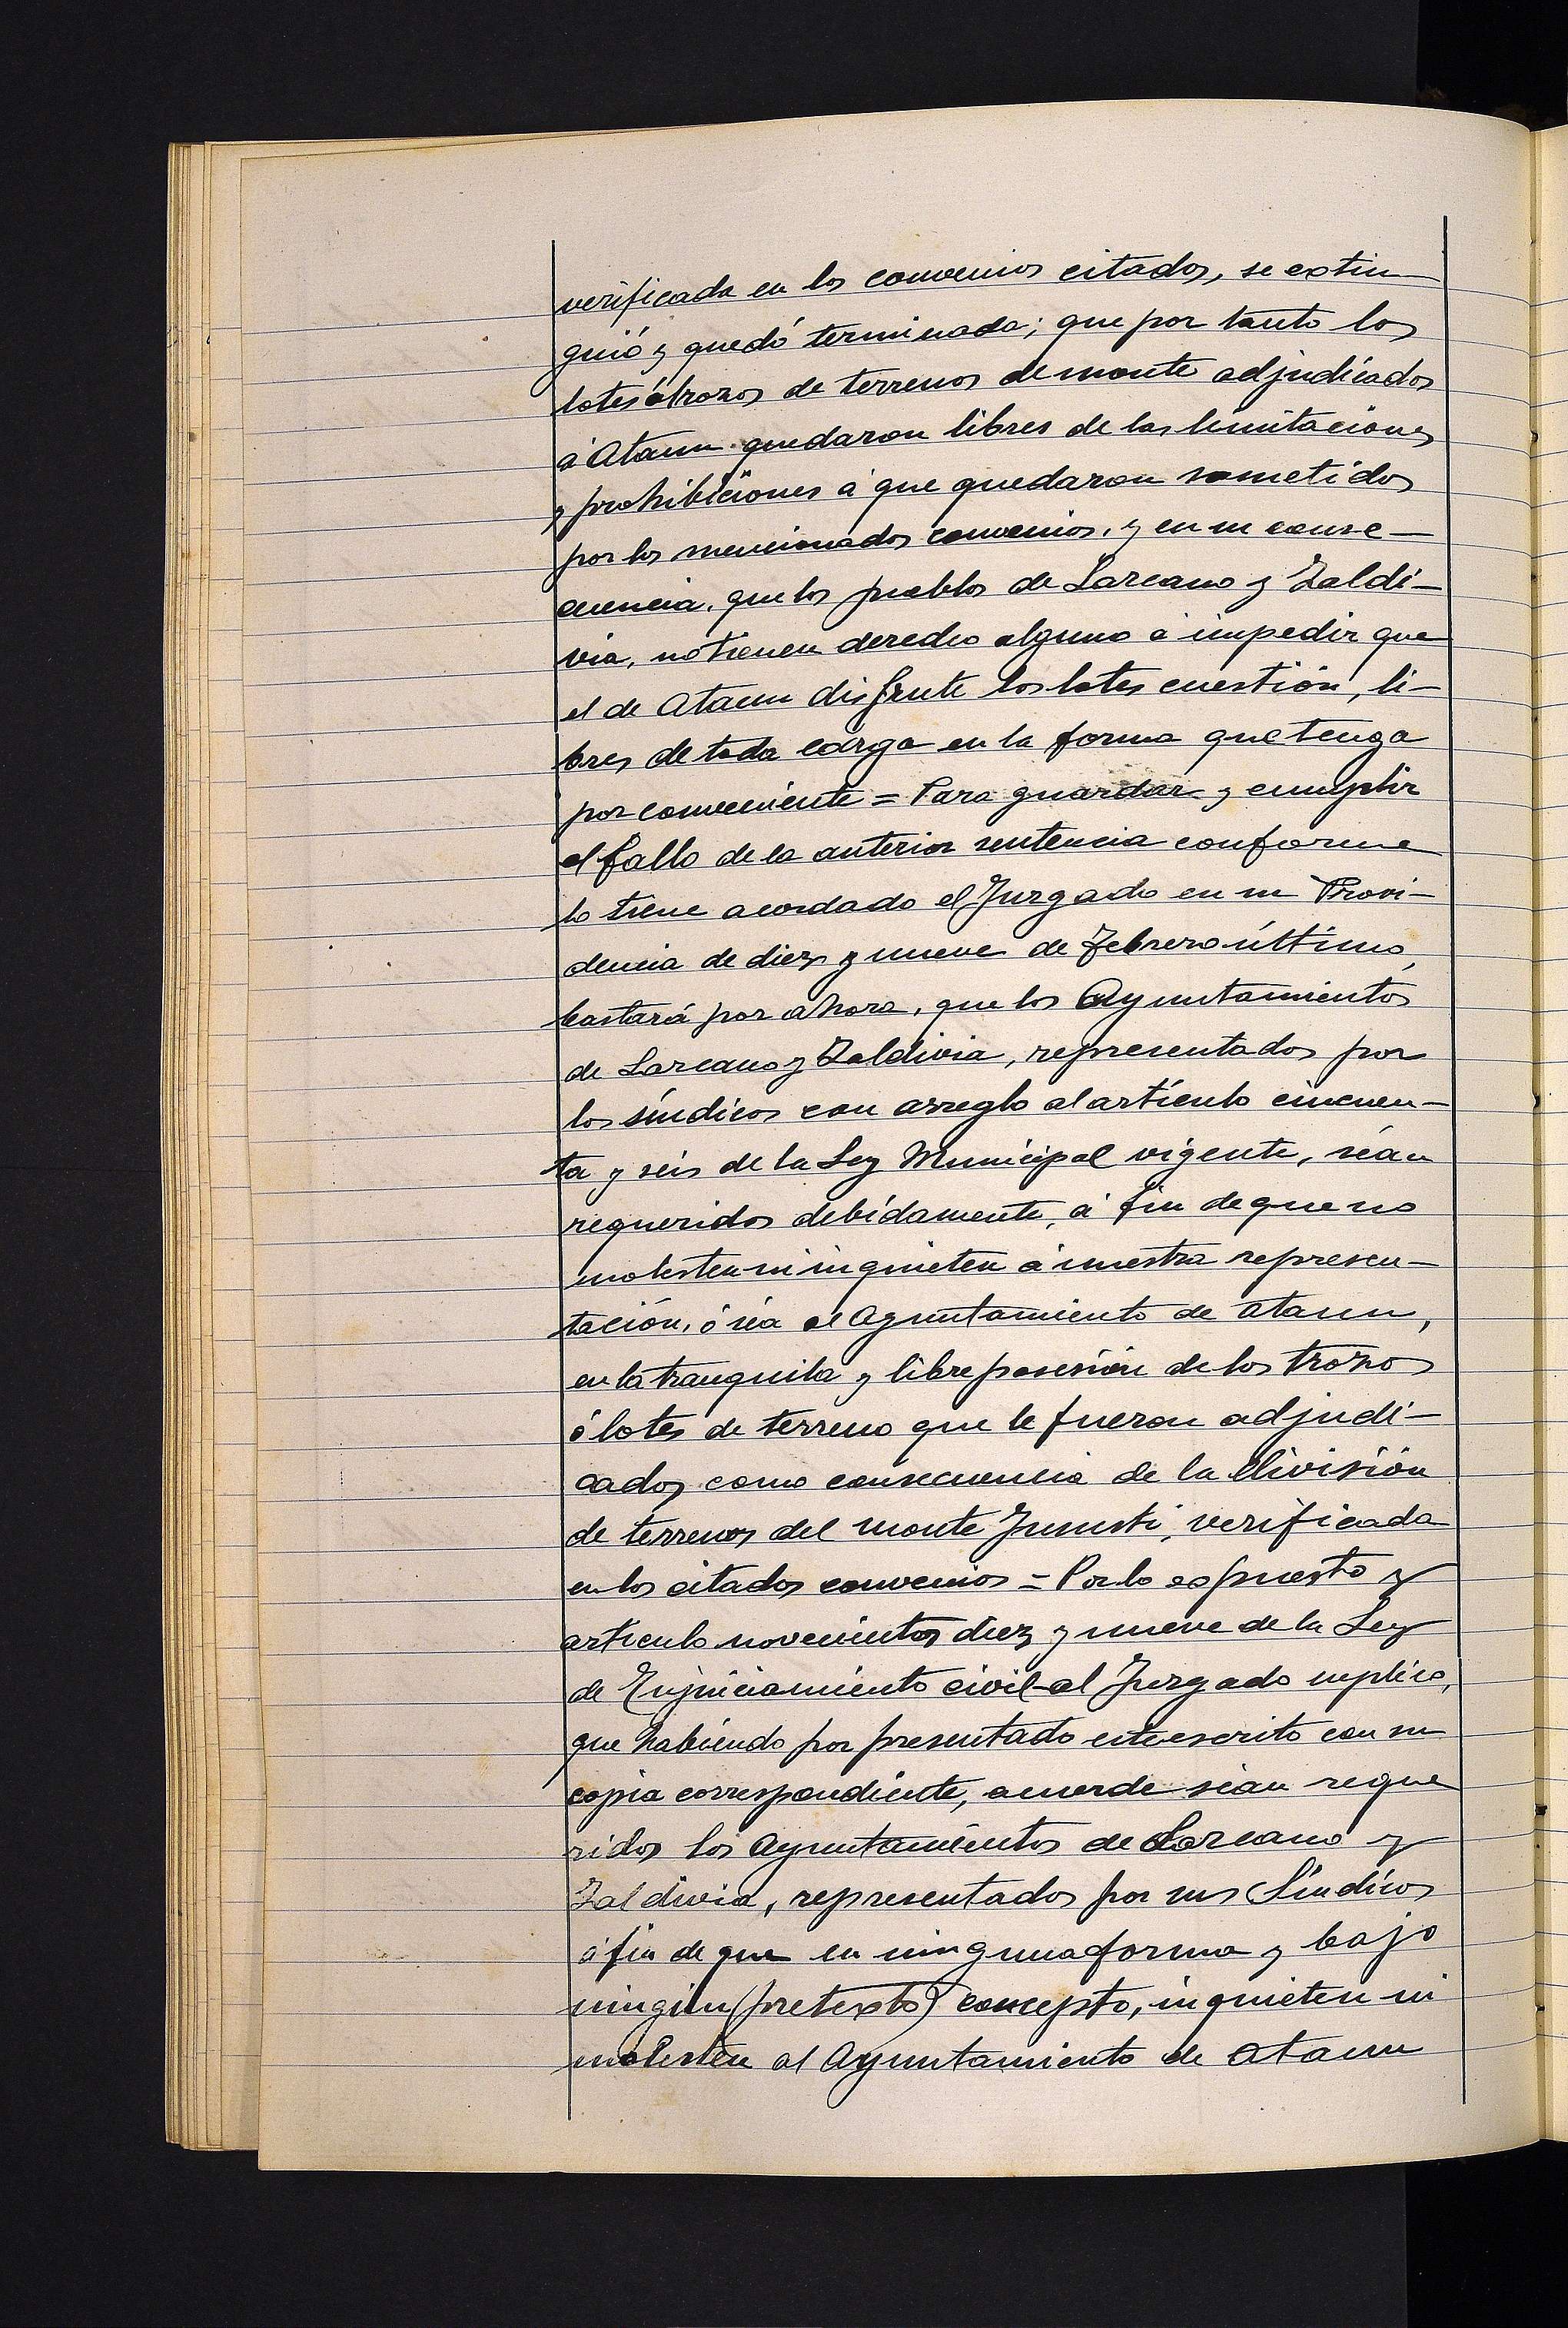 verificada en los convenios citados, se extin
guió y quedó terminada; que por tanto los
lotes ó trozos de terrenos de monte adjudicados
á Ataun quedaron libres de las limitaciones
y prohibiciones á que quedaron sometidos
por los mencionados convenios, y en su conse-
cuencia, que los pueblos de Lazcano y Zaldi-
via, no tienen derecho alguno á impedir que
el de Ataun disfrute los lotes cuestión, li-
bres de toda carga en la forma que tenga
por conveniente = Para guardar y cumplir
el fallo de la anterior sentencia conforme
lo tiene acordado el Juzgado en su Provi-
dencia de diez y nueve de Febrero último,
bastará por ahora, que los Ayuntamientos
de Lazcano y Zaldivia, representados por
los síndicos con arreglo al artículo cincuen-
ta y seis de la Ley Municipal vigente, séan
requeridos debidamente, á fin de que no
molesten ni inquieten á nuestra represen-
tación, ó séa al Ayuntamiento de Ataun,
en la tranquila y libre posesión de los trozos
ó lotes de terreno que le fueron adjudi-
cados como consecuencia de la división
de terrenos del monte Jurusti, verificada
en los citados convenios = Por lo expuesto y
artículo novecientos diez y nueve de la Ley
de Enjuiciamiento civil-al Juzgado suplico,
que habiendo por presentado este escrito con su
copia correspondiente, acuerde séan reque
ridos los Ayuntamientos de Lazcano y
Zaldivia, representados por sus Síndicos
á fin de que en ninguna forma y bajo
ningún (pretexto) concepto, inquieten ni
molesten al Ayuntamiento de Ataun